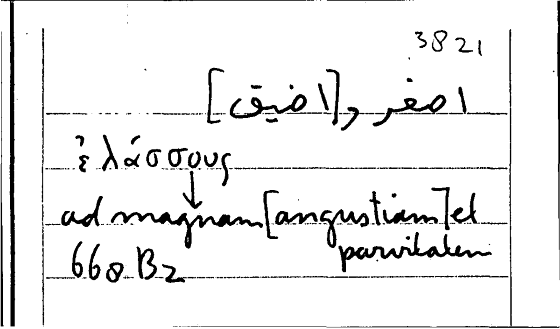 3821
اصغر و[اضيق]
ἐλάσσους
↓
ad magnam [angustiam] et
parvitatem
668 B2